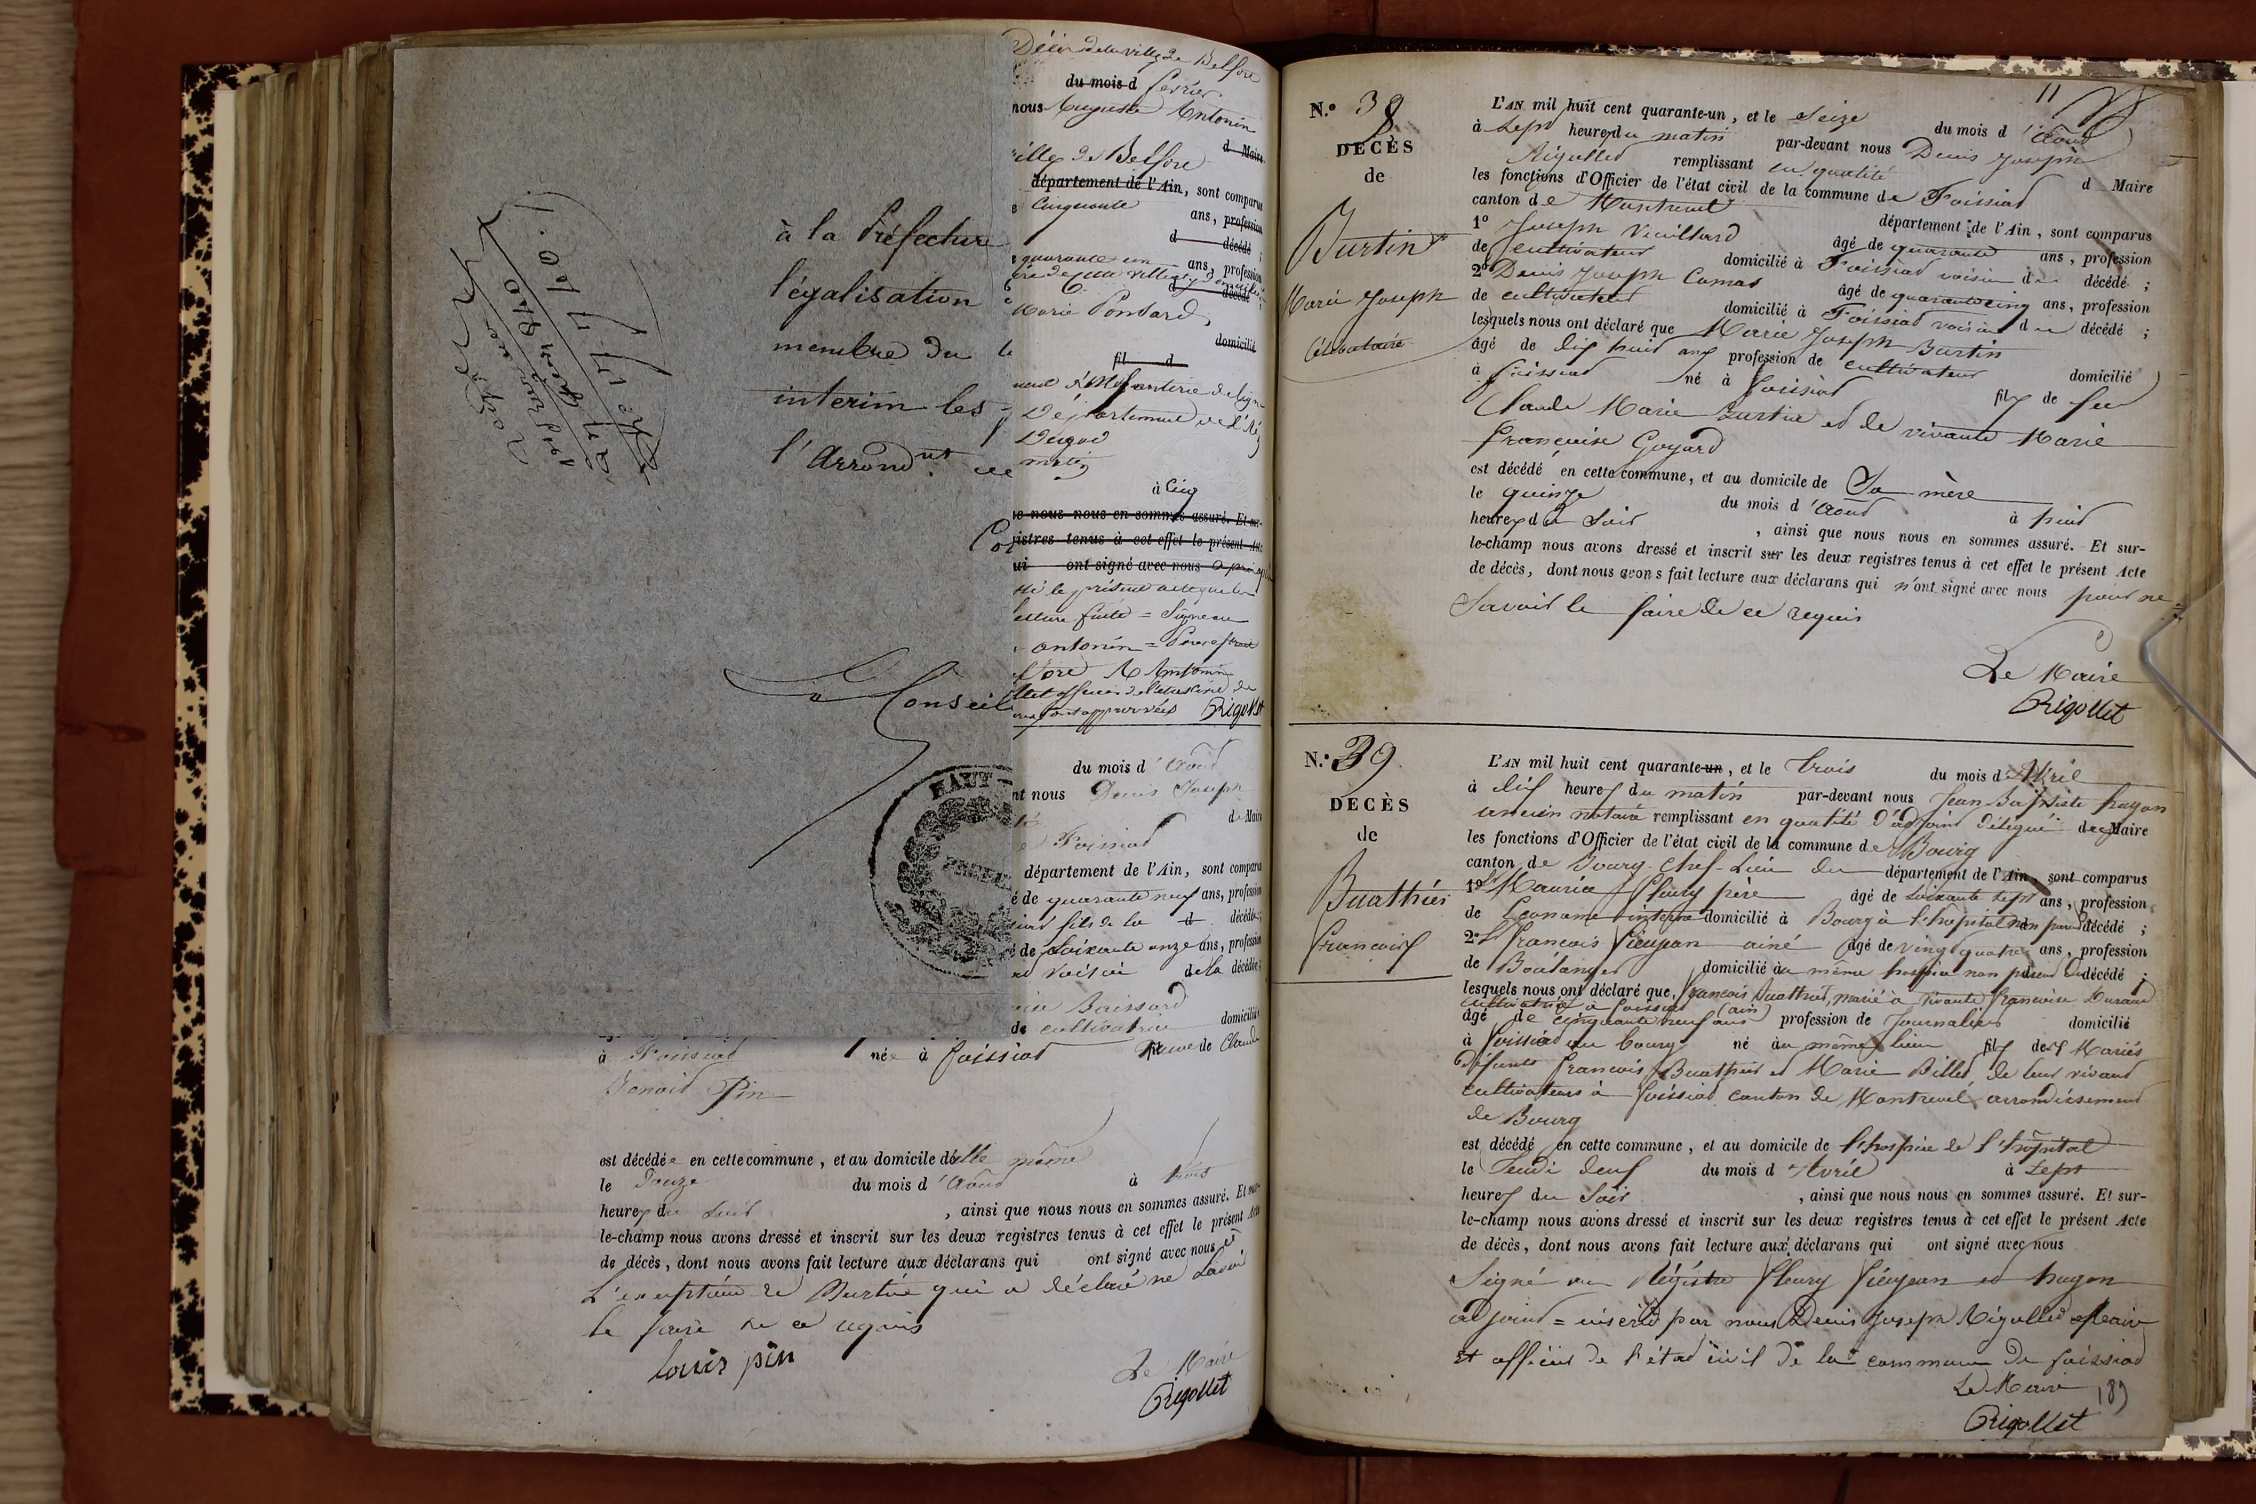 à la Préfecture
légalisation
membre du
interim les
l'Arrond.nt
Conseil
HAUT
Décès de la ville de Belfort
du mois d février
nous Auguste Antonin
d Maire
ville de Belfort
département de l'Ain, sont comparus
Cinquante ans, profession
d décédé ;
quarante un ans, profession
d décédé
Marie Ponsard
domicilié
fil d
d'Infanterie de ligne
Département de l'
matin
à Cinq
nous nous en sommes assuré. Et sur-
istres tenus à cet effet le présent Acte
ui ont signé avec nous
le présent acte
lecture faite = Signé au
antonin =
A Antonin
et officier de l'état civil de
approuvées Rigollet
du mois d'Août
nt nous Denis Joseph
de Maire
Foissiat
département de l'Ain, sont comparus
é de quarante neuf ans, profession
fils de la d décédée ;
é de soixante onze ans, profession
voisin de la décédée ;
Boissard
de cultivatrice domiciliée
à Foissiat née à foissiat Veuve de Claude
Benoit Pin
est décédée en cette commune, et au domicile d'elle même
le Douze du mois d'Août à trois
heures du soir, ainsi que nous nous en sommes assuré. Et sur-
le-champ nous avons dressé et inscrit sur les deux registres tenus à cet effet le présent Acte
de décès, dont nous avons fait lecture aux déclarans qui ont signé avec nous à
L'exception de Burtin qui a déclaré ne savoir
le faire de ce requis
louis pin
Le Maire
Rigollet
11
N.° 38
DÉCÈS
de
Burtin
Marie Joseph
Célibataire
L'AN mil huit cent quarante-un, et le Seize du mois d'Août
à Sept heures du matin par-devant nous Denis Joseph
Rigollet remplissant en qualité d Maire
les fonctions d'Officier de l'état civil de la commune de Foissiat
canton de Montrevel département de l'Ain, sont comparus
1° Joseph Vieillard âgé de quarante ans, profession
de cultivateur domicilié à Foissiat voisin du décédé ;
2° Denis Joseph Camas âgé de quarante cinq ans, profession
de cultivateur domicilié à Foissiat voisin du décédé ;
lesquels nous ont déclaré que Marie Joseph Burtin
âgé de dix huit ans profession de cultivateur domicilié
à foissiat né à foissiat fils de feu
Claude Marie Burtin et de vivante Marie
françoise Goyard
est décédé en cette commune, et au domicile de Sa mère
le quinze du mois d'Août à huit
heures du Soir, ainsi que nous nous en sommes assuré. Et sur-
le-champ nous avons dressé et inscrit sur les deux registres tenus à cet effet le présent Acte
de décès, dont nous avons fait lecture aux déclarans qui n'ont signé avec nous pour ne
Savoir le faire de ce requis
Le Maire
Rigollet
N.° 39
DÉCÈS
de
Buathier
francois
L'AN mil huit cent quarante-un, et le trois du mois d'Avril
à dix heures du matin par-devant nous Jean Baptiste hugon
ancien notaire remplissant en qualité d'adjoint délégué de Maire
les fonctions d'Officier de l'état civil de la commune de Bourg
canton de Bourg Chef-Lieu du département de l'Ain, sont comparus
1° Sr Maurice fleury père âgé de soixante sept ans, profession
de Econome domicilié à Bourg à l'hopital non parent décédé ;
2° Sr francois Piéujean ainé âgé de vingt quatre ans, profession
de Boulanger domicilié au même hospice non parent du décédé ;
lesquels nous ont déclaré que francois Buathier, marié à vivante francoise Durand
cultivatrice à foissiat (ain)
âgé de cinquante neuf ans profession de Journalier domicilié
à foissiat au bourg né au même lieu fils des Mariés
défunts francois Buathier et Marie Billet, de leur vivant
cultivateurs à foissiat canton de Montrevel, arrondissement
de Bourg
est décédé en cette commune, et au domicile de l'hospice de l'hôpital
le Jeudi deux du mois d'Avril à Sept
heures du Soir, ainsi que nous nous en sommes assuré. Et sur-
le-champ nous avons dressé et inscrit sur les deux registres tenus à cet effet le présent Acte
de décès, dont nous avons fait lecture aux déclarans qui ont signé avec nous
Signé au Régistre fleury Piéujean et hugon
adjoint = inscrit par nous Denis Joseph Rigollet Maire
et officier de l'état civil de la commune de foissiat
Le Maire
Rigollet